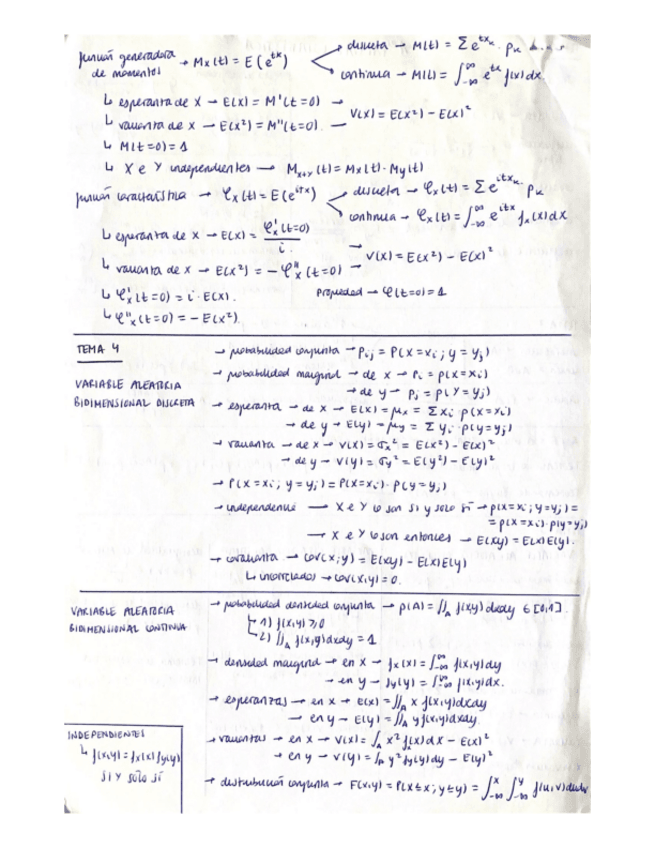 función generadora de momentos → Mx(t) = E(e^tx)
discreta → M(t) = Σ e^tx_k · p_k
continua → M(t) = ∫_-∞^∞ e^tx f(x) dx.
↳ esperanza de X → E(X) = M'(t=0) →
↳ varianza de X → E(X²) = M''(t=0). →
V(X) = E(X²) - E(X)²
↳ M(t=0) = 1
↳ X e Y independientes → M_x+y (t) = Mx(t) · My(t)
función característica → φx(t) = E(e^itx)
discreta → φx(t) = Σ e^itx_k · p_k
continua → φx(t) = ∫_-∞^∞ e^itx fx(x) dx
↳ esperanza de X → E(X) = φ'x(t=0) / i
↳ varianza de X → E(X²) = -φ''x(t=0) →
→ V(X) = E(X²) - E(X)²
↳ φ'x(t=0) = i · E(X).
Propiedad → φ(t=0) = 1
↳ φ''x(t=0) = -E(X²).
TEMA 4
VARIABLE ALEATORIA
BIDIMENSIONAL DISCRETA
→ probabilidad conjunta → Pij = P(X=xi ; Y=yj)
→ probabilidad marginal → de x → Pi = P(X=xi)
→ de y → Pj = P(Y=yj)
→ esperanza → de x → E(X) = μx = Σ xi · P(X=xi)
→ de y → E(y) = μy = Σ yi · P(y=yj)
→ varianza → de x → V(X) = σx² = E(X²) - E(X)²
→ de y → V(y) = σy² = E(y²) - E(y)²
→ P(X=xi ; y=yj) = P(X=xi) · P(y=yj)
→ independencia → X e Y lo son si y solo si → P(X=xi ; y=yj) =
= P(X=xi) · P(y=yj)
→ X e Y lo son entonces → E(xy) = E(x)E(y).
→ covarianza → cov(x;y) = E(xy) - E(x)E(y)
↳ incorreladas → cov(x,y) = 0.
VARIABLE ALEATORIA
BIDIMENSIONAL CONTINUA
→ probabilidad densidad conjunta → P(A) = ∬_A f(x,y) dxdy ∈ [0,1].
↳ 1) f(x,y) ≥ 0
↳ 2) ∬_A f(x,y) dxdy = 1
→ densidad marginal → en x → fx(x) = ∫_-∞^∞ f(x,y) dy
→ en y → fy(y) = ∫_-∞^∞ f(x,y) dx.
→ esperanzas → en x → E(x) = ∬_A x f(x,y) dxdy
→ en y → E(y) = ∬_A y f(x,y) dxdy.
→ varianzas → en x → V(x) = ∫_A x² f(x) dx - E(x)²
→ en y → V(y) = ∫_A y² fy(y) dy - E(y)²
→ distribución conjunta → F(x,y) = P(X≤x ; y≤y) = ∫_-∞^x ∫_-∞^y f(u,v) dudv
INDEPENDIENTES
↳ f(x,y) = fx(x) fy(y)
SI Y SOLO SÍ